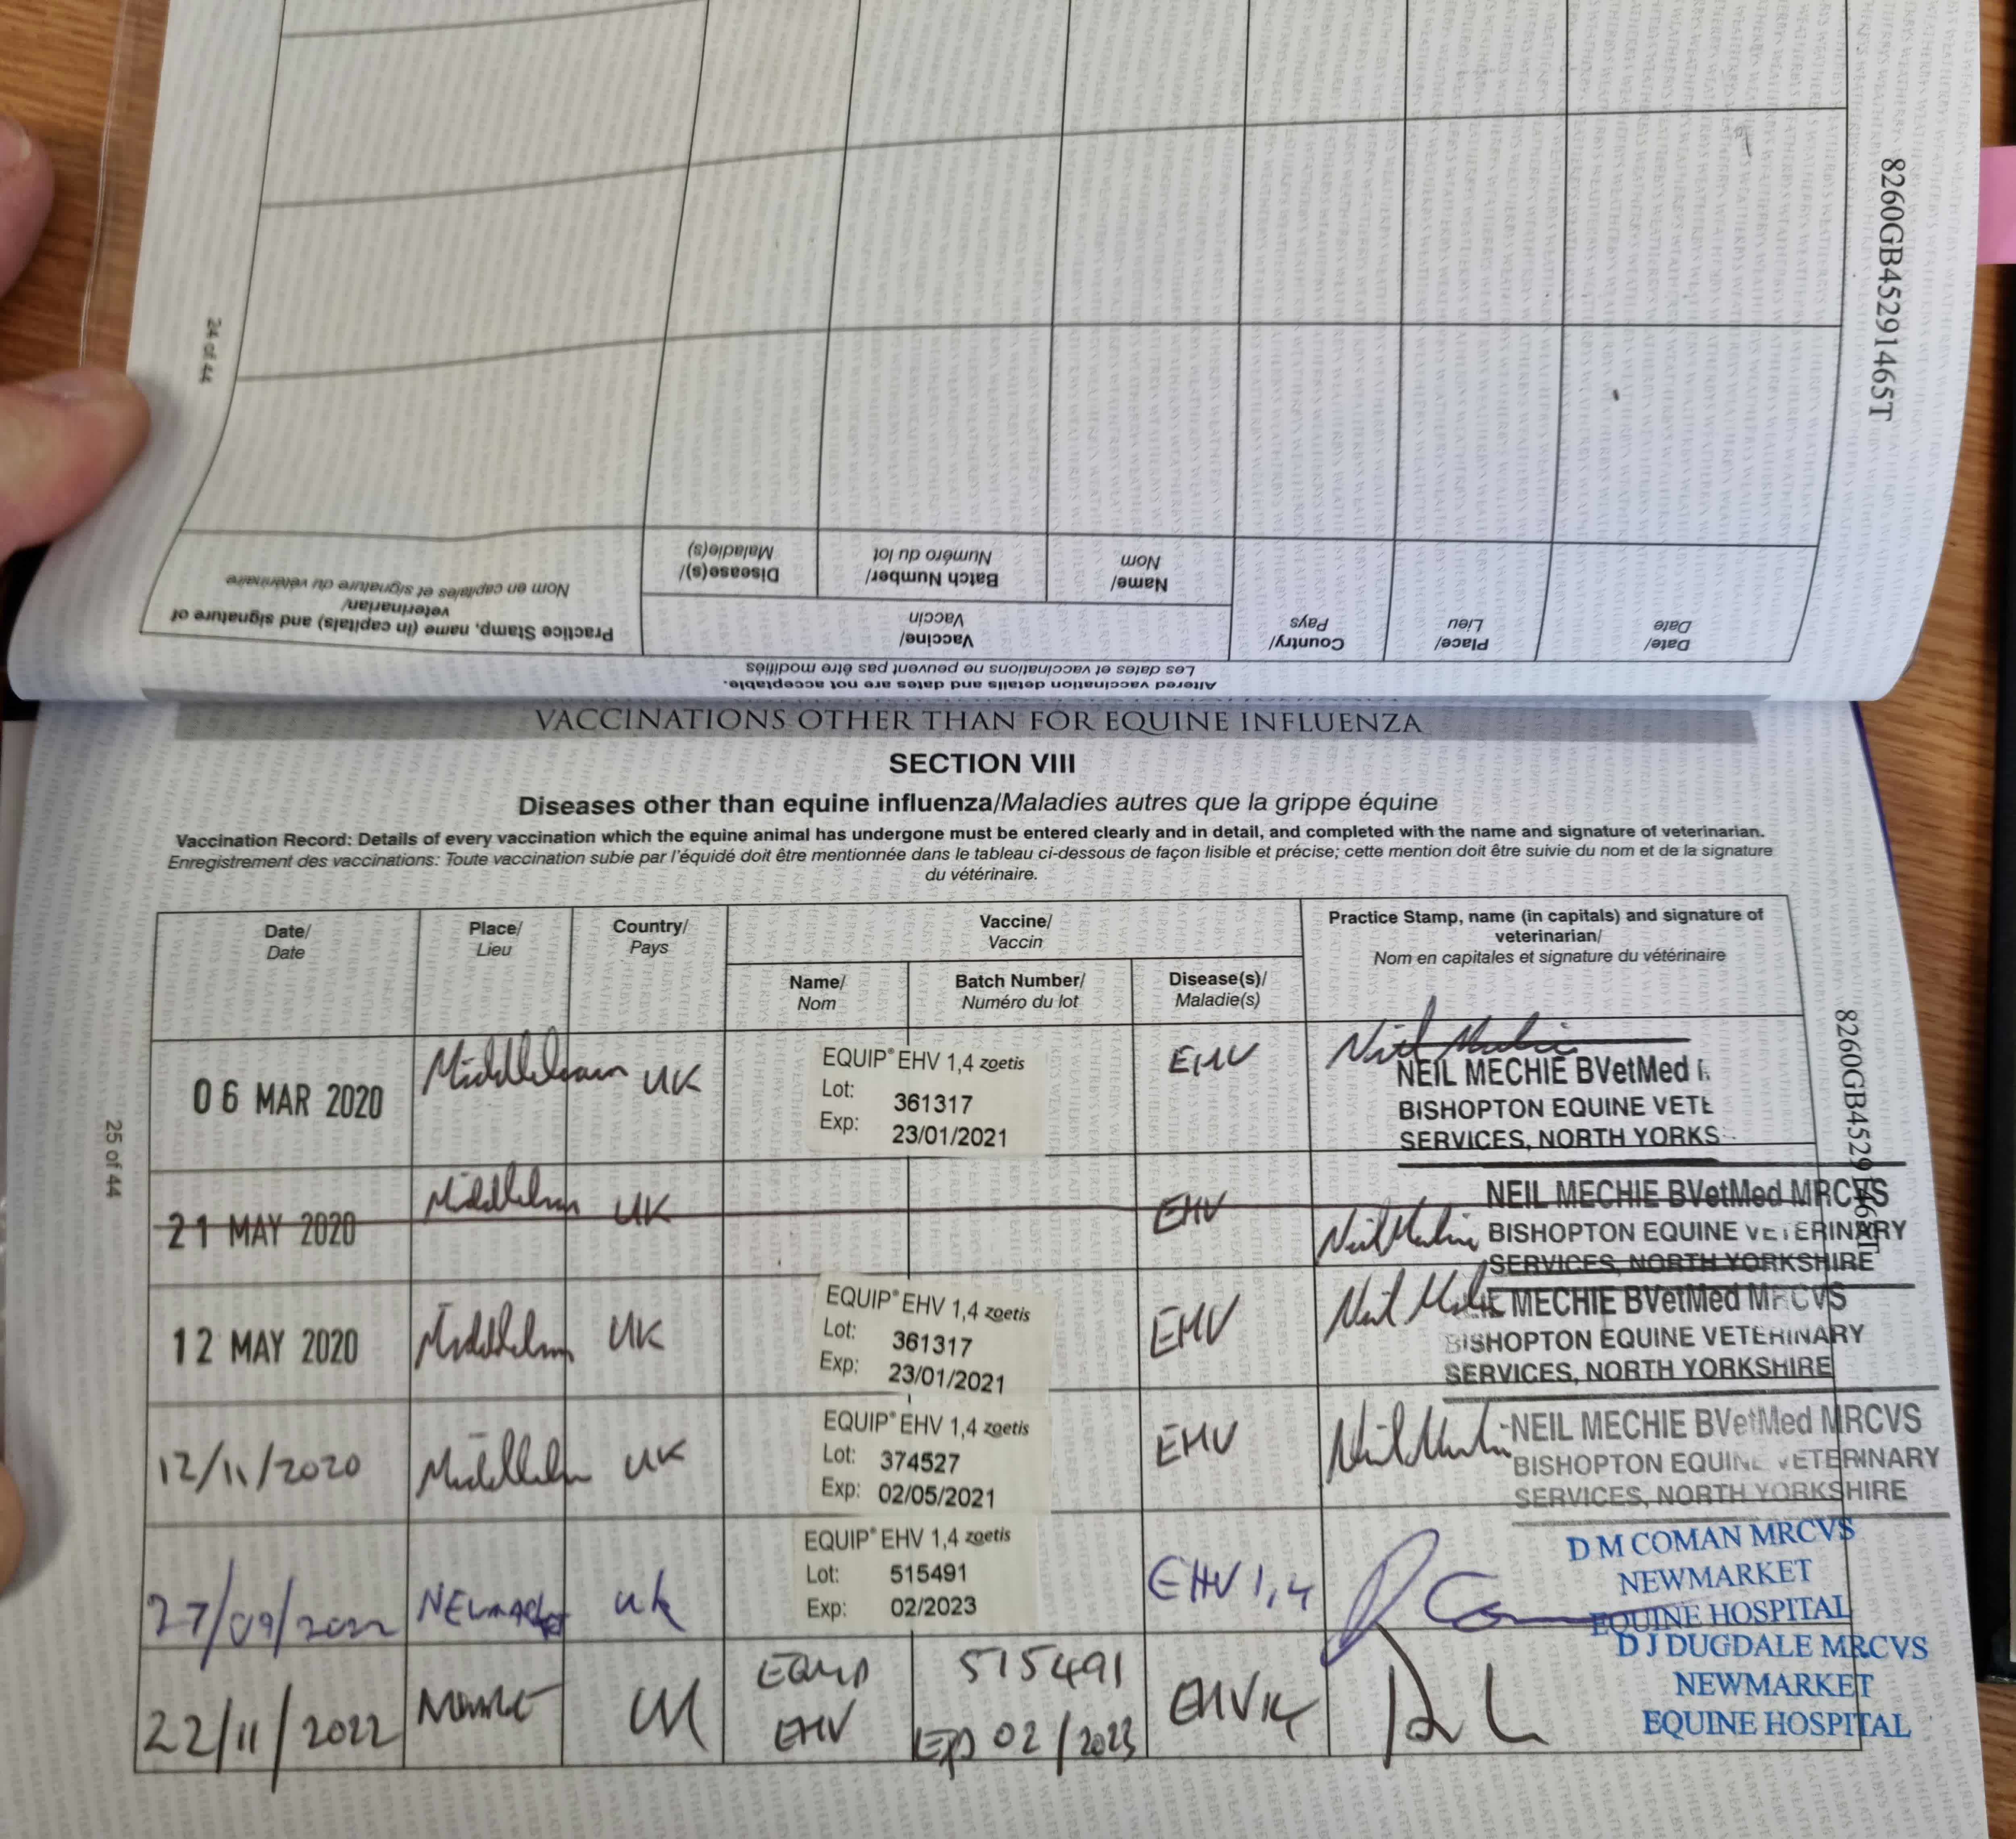 8260GB45291465T
24 of 44
Date/
Date
Place/
Lieu
Country/
Pays
Vaccine/
Vaccin
Name/
Nom
Batch Number/
Numéro du lot
Disease(s)/
Maladie(s)
Practice Stamp, name (in capitals) and signature of
veterinarian/
Nom en capitales et signature du vétérinaire
Altered vaccination details and dates are not acceptable.
Les dates et vaccinations ne peuvent pas être modifiés
VACCINATIONS OTHER THAN FOR EQUINE INFLUENZA
SECTION VIII
Diseases other than equine influenza/Maladies autres que la grippe équine
Vaccination Record: Details of every vaccination which the equine animal has undergone must be entered clearly and in detail, and completed with the name and signature of veterinarian.
Enregistrement des vaccinations: Toute vaccination subie par l'équidé doit être mentionnée dans le tableau ci-dessous de façon lisible et précise; cette mention doit être suivie du nom et de la signature
du vétérinaire.
Date/
Date
Place/
Lieu
Country/
Pays
Vaccine/
Vaccin
Name/
Nom
Batch Number/
Numéro du lot
Disease(s)/
Maladie(s)
Practice Stamp, name (in capitals) and signature of
veterinarian/
Nom en capitales et signature du vétérinaire
06 MAR 2020
Middleham
UK
EQUIP® EHV 1,4 zoetis
Lot: 361317
Exp: 23/01/2021
EHV
NEIL MECHIE BVetMed
BISHOPTON EQUINE VETE
SERVICES, NORTH YORKS
21 MAY 2020
Middleham
UK
EHV
NEIL MECHIE BVetMed MRCVS
BISHOPTON EQUINE VETERINARY
SERVICES, NORTH YORKSHIRE
12 MAY 2020
Middleham
UK
EQUIP® EHV 1,4 zoetis
Lot: 361317
Exp: 23/01/2021
EHV
MECHIE BVetMed MRCVS
BISHOPTON EQUINE VETERINARY
SERVICES, NORTH YORKSHIRE
12/11/2020
Middleham
UK
EQUIP® EHV 1,4 zoetis
Lot: 374527
Exp: 02/05/2021
EHV
NEIL MECHIE BVetMed MRCVS
BISHOPTON EQUINE VETERINARY
SERVICES, NORTH YORKSHIRE
27/09/2022
NEWMARKET
UK
EQUIP® EHV 1,4 zoetis
Lot: 515491
Exp: 02/2023
EHV 1,4
D M COMAN MRCVS
NEWMARKET
EQUINE HOSPITAL
22/11/2022
UK
EQUIP
EHV
515491
Exp 02/2023
EHV 1,4
D J DUGDALE MRCVS
NEWMARKET
EQUINE HOSPITAL
25 of 44